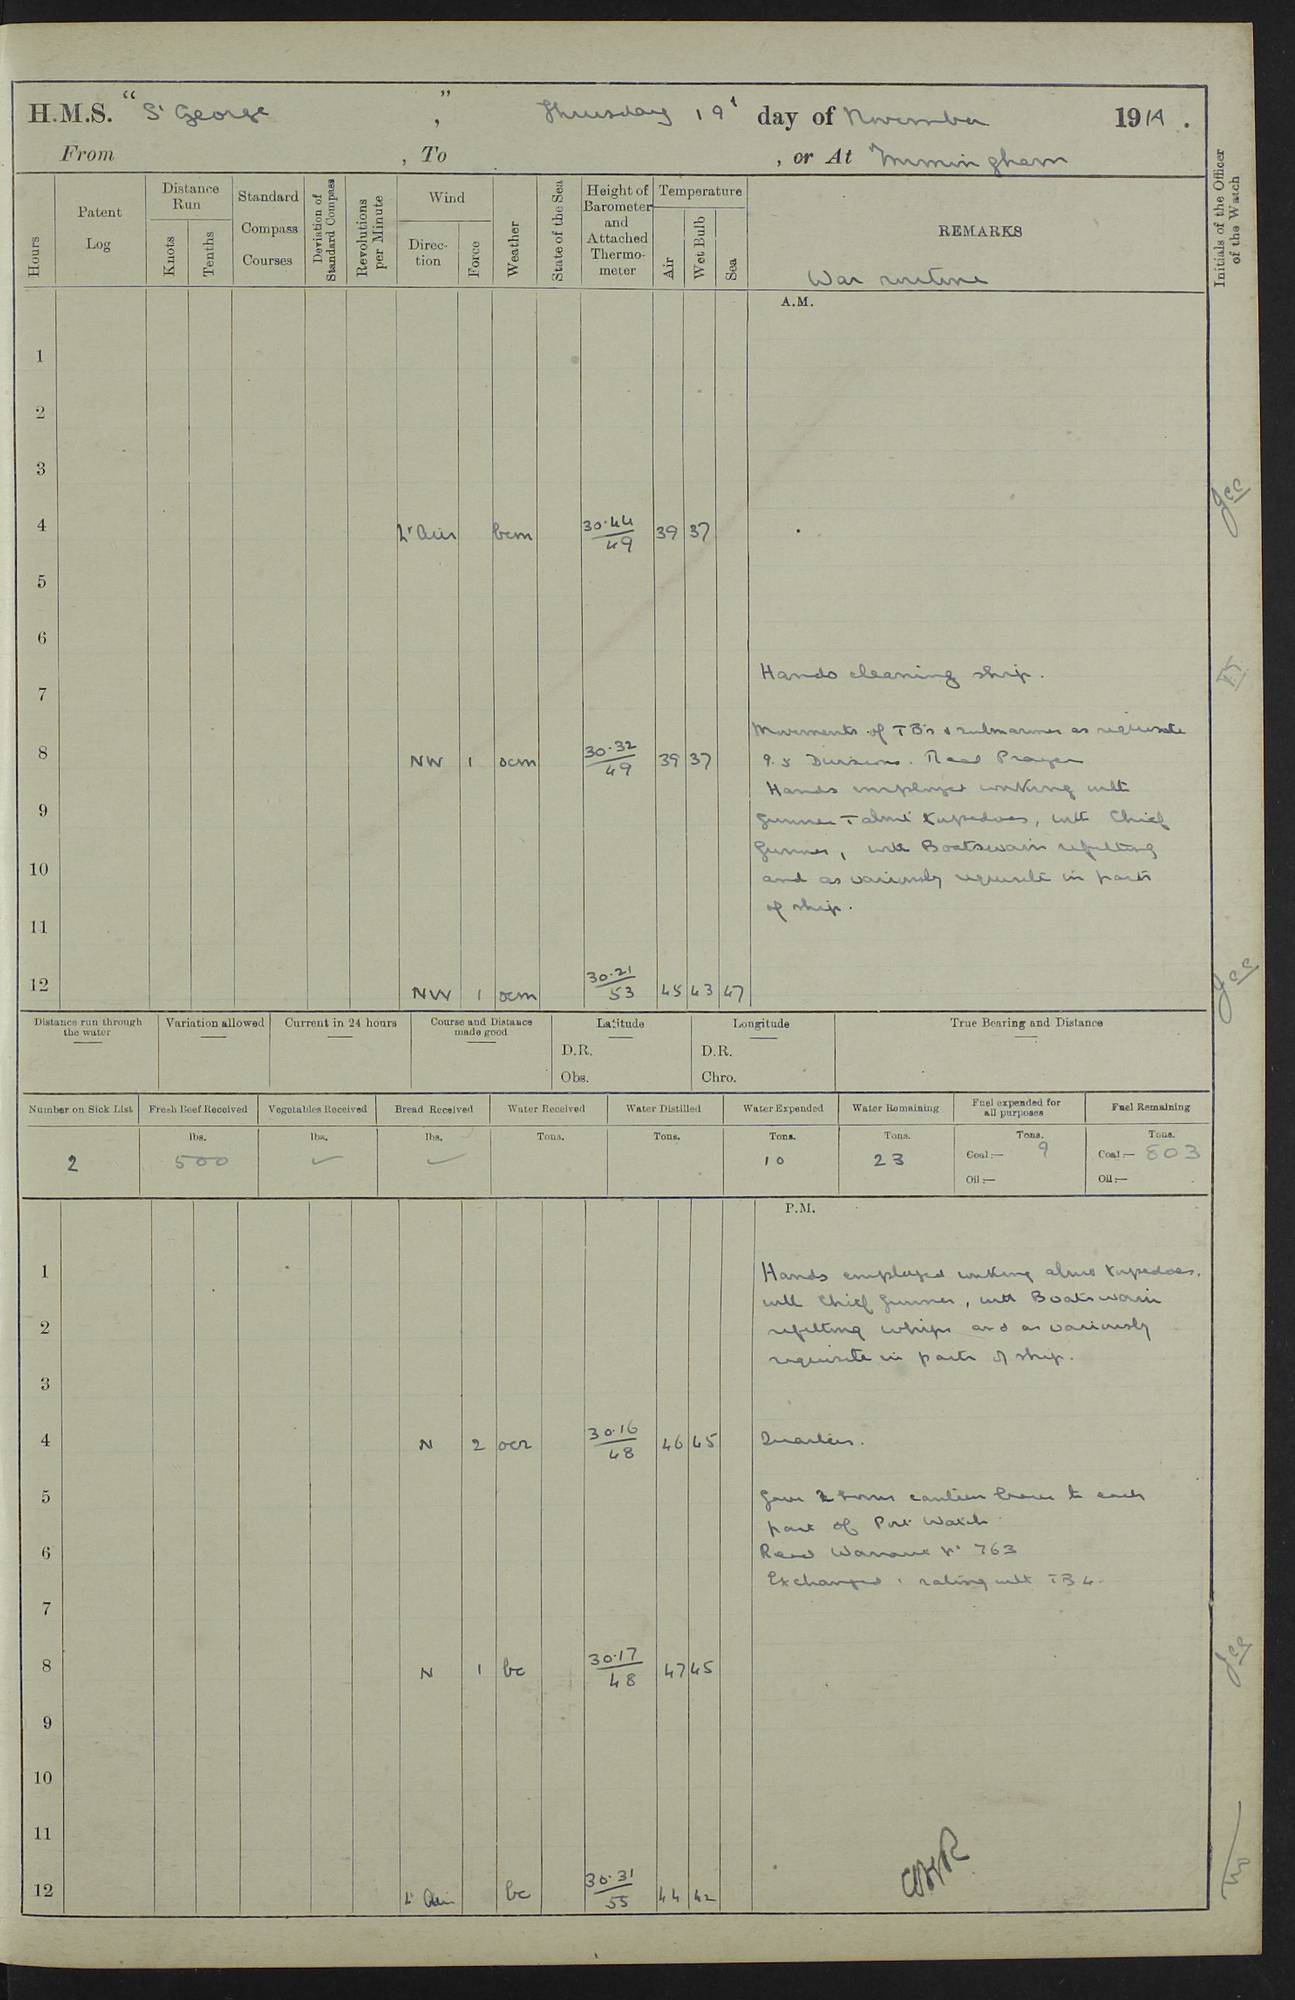 H.M.S. "St George", Thursday 19th day of November 1914.
From , To , or At Immingham
Hours
Patent Log
Distance Run
Knots
Tenths
Standard Compass Courses
Deviation of Standard Compass
Revolutions per Minute
Wind
Direction
Force
Weather
State of the Sea
Height of Barometer and Attached Thermometer
Temperature
Air
Wet Bulb
Sea
REMARKS
Initials of the Officer of the Watch
War routine
A.M.
1
2
3
4 Lt Air bcm 30.44/49 39 37
5
6
Hands cleaning ship.
7
Movements of TB's & submarines as requisite
8 NW 1 ocm 30.32/49 39 37
9.5 Divisions. Read Prayers
Hands employed working with
9
Gunner T about torpedoes, with Chief
Gunner, with Boatswain refitting
10
and as variously requisite in parts
of ship.
11
12 NW 1 ocm 30.21/53 45 43 47
Distance run through the water
Variation allowed
Current in 24 hours
Course and Distance made good
Latitude
D.R.
Obs.
Longitude
D.R.
Chro.
True Bearing and Distance
Number on Sick List
Fresh Beef Received
Vegetables Received
Bread Received
Water Received
Water Distilled
Water Expended
Water Remaining
Fuel expended for all purposes
Fuel Remaining
lbs. lbs. lbs. Tons. Tons. Tons. Tons. Tons. Tons.
2 500 ✓ ✓ 10 23 Coal:— 9 Coal:— 803
Oil:— Oil:—
P.M.
1
Hands employed working about torpedoes,
with Chief Gunner, with Boatswain
2
refitting whips and as variously
requisite in parts of ship.
3
4 N 2 ocr 30.16/48 46 45 Quarters.
5
Gave 2 hours canteen leave to each
part of Port Watch
6
Read Warrant No 763
Exchanged 1 rating with TB 4.
7
8 N 1 bc 30.17/48 47 45
9
10
11
12 Lt Air bc 30.31/55 44 42